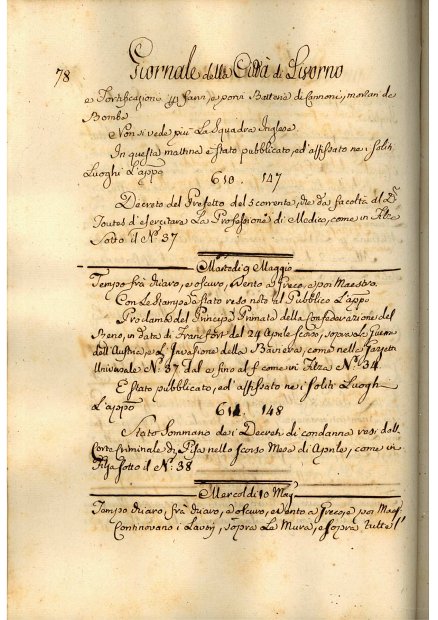 78 Giornale della Città di Livorno
e Fortificazioni p. farvi e porvi Batterie di Cannoni, mortari da
Bombe
Non si vede più La Squadra Inglese.
In questa mattina è stato pubblicato, ed'affissato nei soliti
Luoghi L'app.o
610. 147
Decreto del Prefetto del 5 corrente, che da facoltà al D.r
Toutos d'esercitare La Professione di Medico, come in Filza
Sotto il N.o 37
Martedi 9 Maggio
Tempo frà chiaro, e oscuro, Vento a Greco, e poi Maestro.
Con Le Stampe è stato reso noto al Pubblico L'app.o
Proclama del Principe Primate della Confederazione del
Reno, in data di Francfort del 24 Aprile scorso, sopra La Guerra
dell'Austria, e L'Invasione della Baviera, come nella Gazzetta
Universale N.o 37 dal e fino al f come in Filza N.o 34.
E stato pubblicato, ed'affissato nei soliti Luoghi
L'app.to
611. 148
Stato Sommario dei Decreti di condanna resi dalla
Corte Criminale di Pisa nello scorso Mese di Aprile, come in
Filza sotto il N.o 38
Mercoldi 10 Mag.o
Tempo chiaro, frà chiaro, e oscuro, e Vento a Greco, e poi Maes.
Continovano i Lavori, sopra Le Mura, e sopra tutte